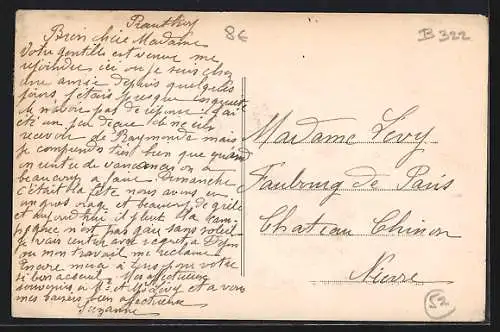 Rauthey
Bien chère Madame
Votre gentille est venue me
rejoindre ici où je suis chez
une amie depuis quelques
jours j'étais presque inquiète
de n'avoir pas de réponse et j'ai
été un peu deçue de ne rien
recevoir de Raymonde mais
je comprends très bien que quand
on est de vacances on a
beaucoup à faire Dimanche
c'était la fête nous avons eu
un gros orage et beaucoup de grêle
et aujourd'hui il pleut la cam-
pagne n'est pas gaie sans soleil
je vais rentrer avec regret à
ou mon travail me réclame
Encore merci à tous pour votre
si bon accueil. Mes affectueux
souvenirs à Mr et Mlle Lévy et à vous
mes baisers bien affectueux
Suzanne
8€
B 322
Madame Lévy
Faubourg de Paris
Chateau Chinon
Nièvre
52